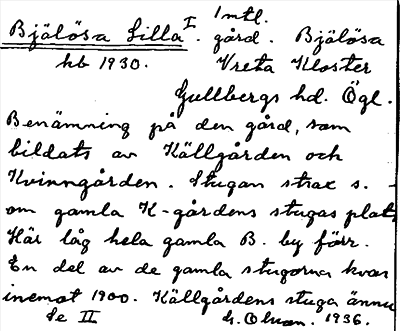 Bjälösa Lilla I. 1 mtl. gård. Bjälösa
hb 1930. Vreta Kloster
Gullbergs hd. Ögl.
Benämning på den gård, som
bildats av Källgården och
Kvinngården. Stugan strax s.
om gamla K-gårdens stugas plats
Här låg hela gamla B. by förr.
En del av de gamla stugorna kvar
inemot 1900. Källgårdens stuga ännu
Se II 1936.